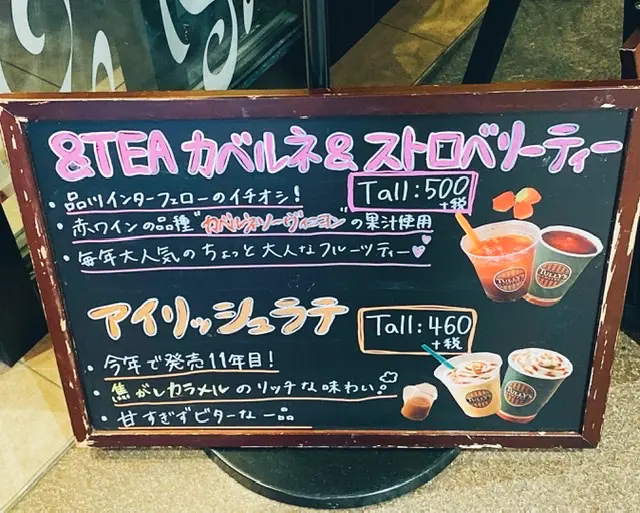 &TEA カベルネ & ストロベリーティー
・品川インターフェローのイチオシ!
Tall:500
+税
・赤ワインの品種"カベルネソーヴィニヨン"の果汁使用
・毎年大人気のちょっと大人なフルーツティー♡♡
TULLY'S
TULLY'S
アイリッシュラテ
Tall:460
+税
・今年で発売11年目!
・焦がしカラメルのリッチな味わい。
・甘すぎずビターな一品
TULLY'S
TULLY'S